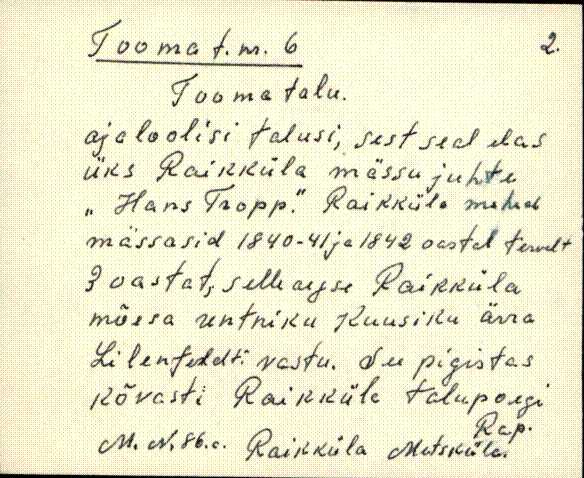 Tooma t. nr. 6 2.
Tooma talu.
ajaloolisi talusi, sest seal elas
üks Raikküla mässu juhte
„Hans Tropp." Raikküla mehed
mässasid 1840-41 ja 1842 aastal tervelt
3 aastat, selleaegse Raikküla
mõesa rentniku Kuusiku ärra
Lilenfeldti vastu. See pigistas
kõvasti Raikküla talupoegi
M. N, 86. a. Raikküla Metsküla. Rap.